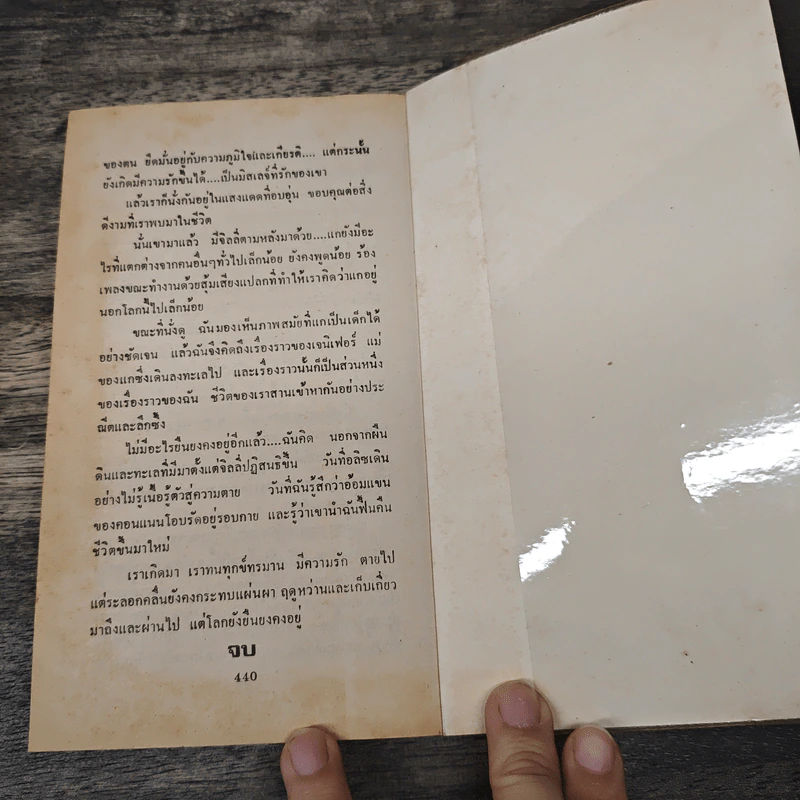 ของตน ยึดมั่นอยู่กับความภูมิใจและเกียรติ.... แต่กระนั้น
ยังเกิดมีความรักขึ้นได้....เป็นมิสเลจ์ที่รักของเขา
แล้วเราก็นั่งกันอยู่ในแสงแดดที่อบอุ่น ขอบคุณต่อสิ่ง
ดีงามที่เราพบมาในชีวิต
นั่นเขามาแล้ว มีจิลลี่ตามหลังมาด้วย....แกยังมีอะ
ไรที่แตกต่างจากคนอื่นๆทั่วไปเล็กน้อย ยังคงพูดน้อย ร้อง
เพลงขณะทำงานด้วยสุ้มเสียงแปลกที่ทำให้เราคิดว่าแกอยู่
นอกโลกนี้ไปเล็กน้อย
ขณะที่นั่งดู ฉันมองเห็นภาพสมัยที่แกเป็นเด็กได้
อย่างชัดเจน แล้วฉันจึงคิดถึงเรื่องราวของเจนิเฟอร์ แม่
ของแกซึ่งเดินลงทะเลไป และเรื่องราวนั้นก็เป็นส่วนหนึ่ง
ของเรื่องราวของฉัน ชีวิตของเราสานเข้าหากันอย่างประ
ณีตและลึกซึ้ง
ไม่มีอะไรยืนยงคงอยู่อีกแล้ว....ฉันคิด นอกจากผืน
ดินและทะเลที่มีมาตั้งแต่จิลลี่ปฏิสนธิขึ้น วันที่อลิซเดิน
อย่างไม่รู้เนื้อรู้ตัวสู่ความตาย วันที่ฉันรู้สึกว่าอ้อมแขน
ของคอนแนนโอบรัดอยู่รอบกาย และรู้ว่าเขานำฉันฟื้นคืน
ชีวิตขึ้นมาใหม่
เราเกิดมา เราทนทุกข์ทรมาน มีความรัก ตายไป
แต่ระลอกคลื่นยังคงกระทบแผ่นผา ฤดูหว่านและเก็บเกี่ยว
มาถึงและผ่านไป แต่โลกยังยืนยงคงอยู่
จบ
440